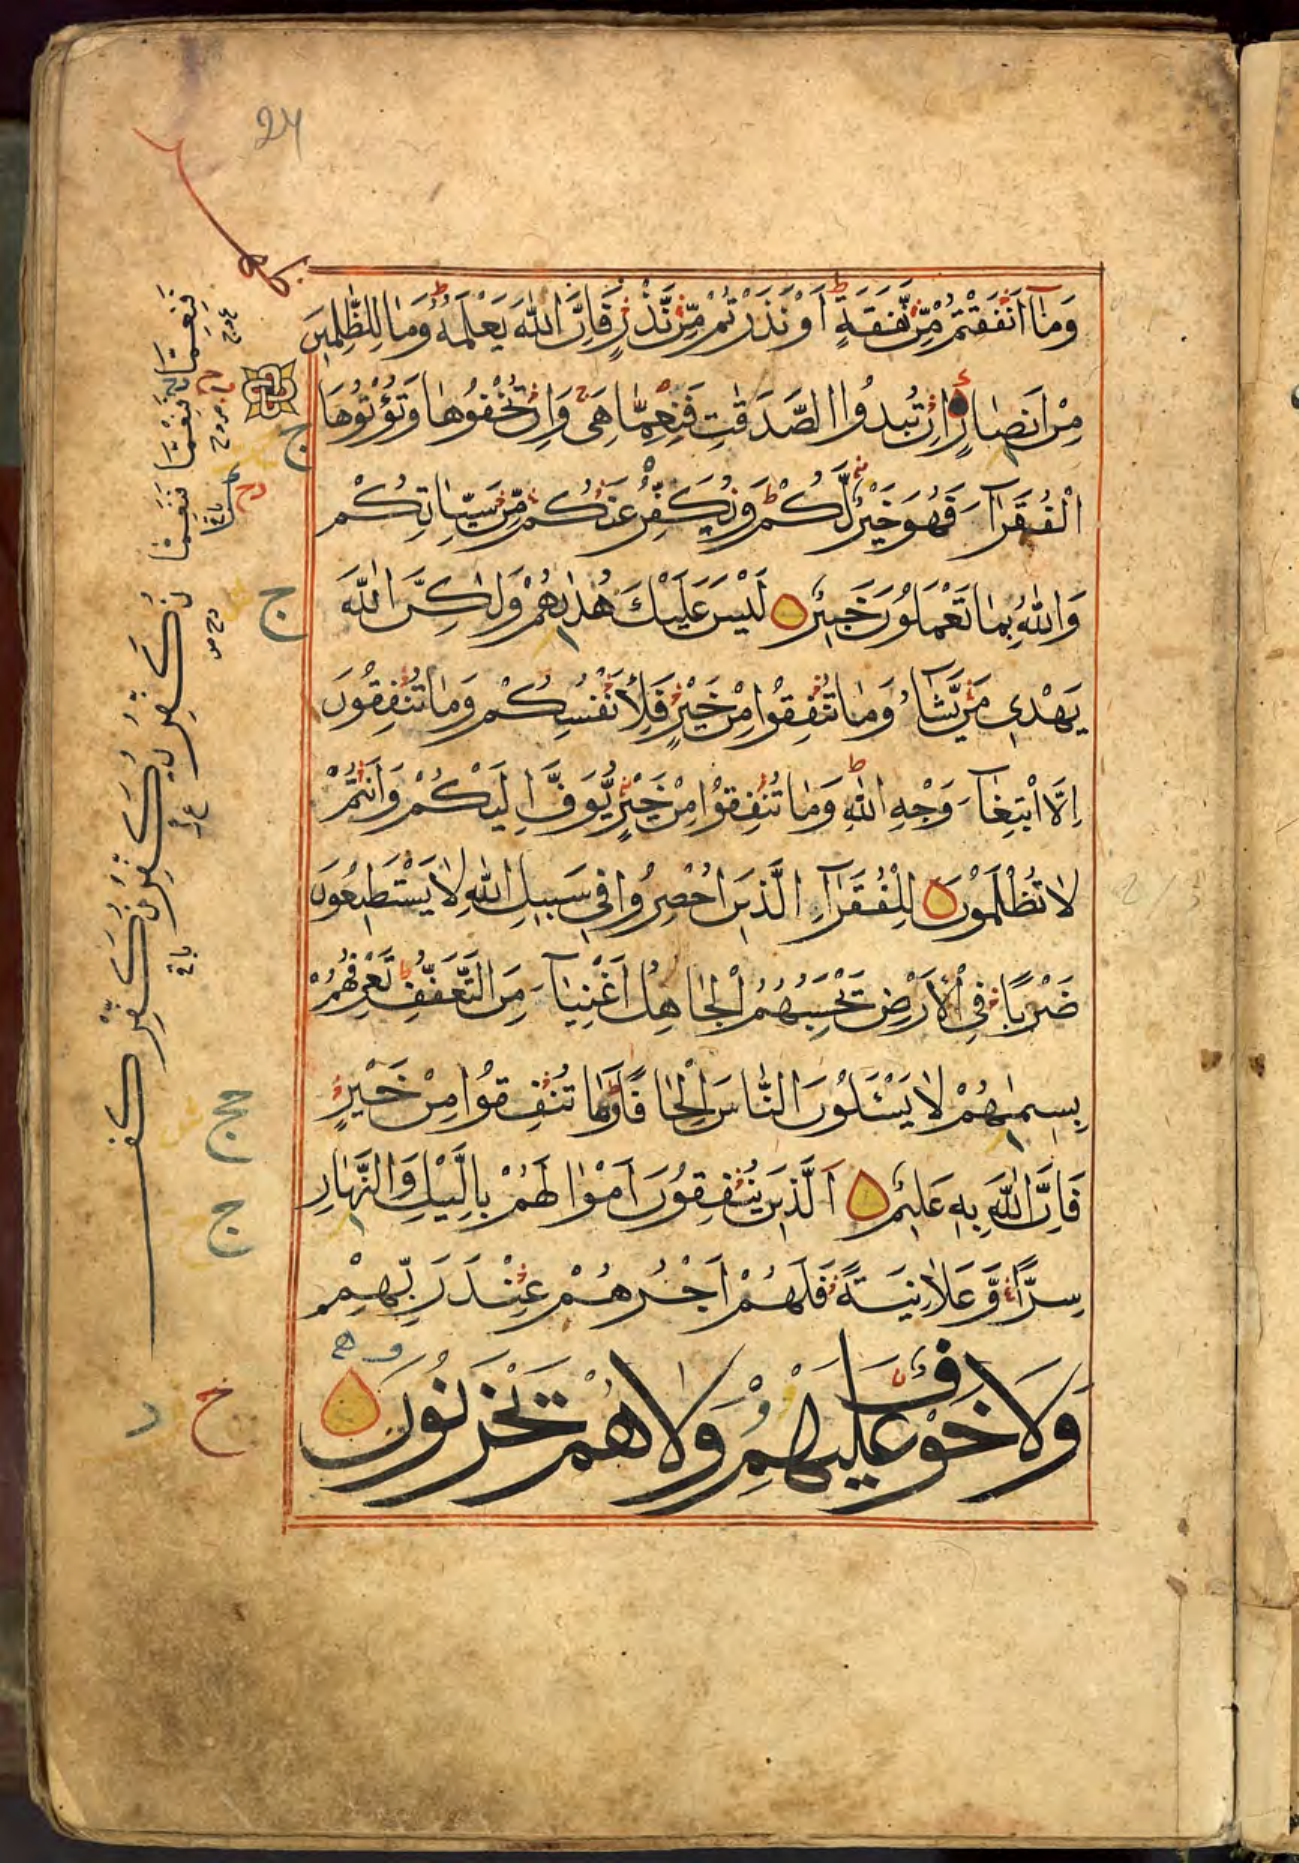 24
وَمَآ اَنْفَقْتُمْ مِّنْ نَّفَقَةٍ اَوْ نَذَرْتُمْ مِّنْ نَّذْرٍ فَاِنَّ اللّٰهَ يَعْلَمُهٗ وَمَا لِلظّٰلِمِيْنَ
مِنْ اَنْصَارٍ اِنْ تُبْدُوا الصَّدَقٰتِ فَنِعِمَّا هِىَ وَاِنْ تُخْفُوْهَا وَتُؤْتُوْهَا
الْفُقَرَآءَ فَهُوَ خَيْرٌ لَّكُمْ وَنُكَفِّرُ عَنْكُمْ مِّنْ سَيِّاٰتِكُمْ
وَاللّٰهُ بِمَا تَعْمَلُوْنَ خَبِيْرٌ لَيْسَ عَلَيْكَ هُدٰىهُمْ وَلٰكِنَّ اللّٰهَ
يَهْدِى مَنْ يَّشَآءُ وَمَا تُنْفِقُوْا مِنْ خَيْرٍ فَلِاَنْفُسِكُمْ وَمَا تُنْفِقُوْنَ
اِلَّا ابْتِغَآءَ وَجْهِ اللّٰهِ وَمَا تُنْفِقُوْا مِنْ خَيْرٍ يُّوَفَّ اِلَيْكُمْ وَاَنْتُمْ
لَا تُظْلَمُوْنَ لِلْفُقَرَآءِ الَّذِيْنَ اُحْصِرُوْا فِى سَبِيْلِ اللّٰهِ لَا يَسْتَطِيْعُوْنَ
ضَرْبًا فِى الْاَرْضِ يَحْسِبُهُمُ الْجَاهِلُ اَغْنِيَآءَ مِنَ التَّعَفُّفِ تَعْرِفُهُمْ
بِسِيْمٰهُمْ لَا يَسْـَٔلُوْنَ النَّاسَ اِلْحَافًا وَمَا تُنْفِقُوْا مِنْ خَيْرٍ
فَاِنَّ اللّٰهَ بِهٖ عَلِيْمٌ اَلَّذِيْنَ يُنْفِقُوْنَ اَمْوَالَهُمْ بِالَّيْلِ وَالنَّهَارِ
سِرًّا وَّعَلَانِيَةً فَلَهُمْ اَجْرُهُمْ عِنْدَ رَبِّهِمْ
وَلَا خَوْفٌ عَلَيْهِمْ وَلَا هُمْ يَحْزَنُوْنَ
فَنِعِمَّا فَنِعْمَّا فَنَعِمَّا
نُكَفِّرْ يُكَفِّرُ نُكَفِّرُ
ج
ج
ج